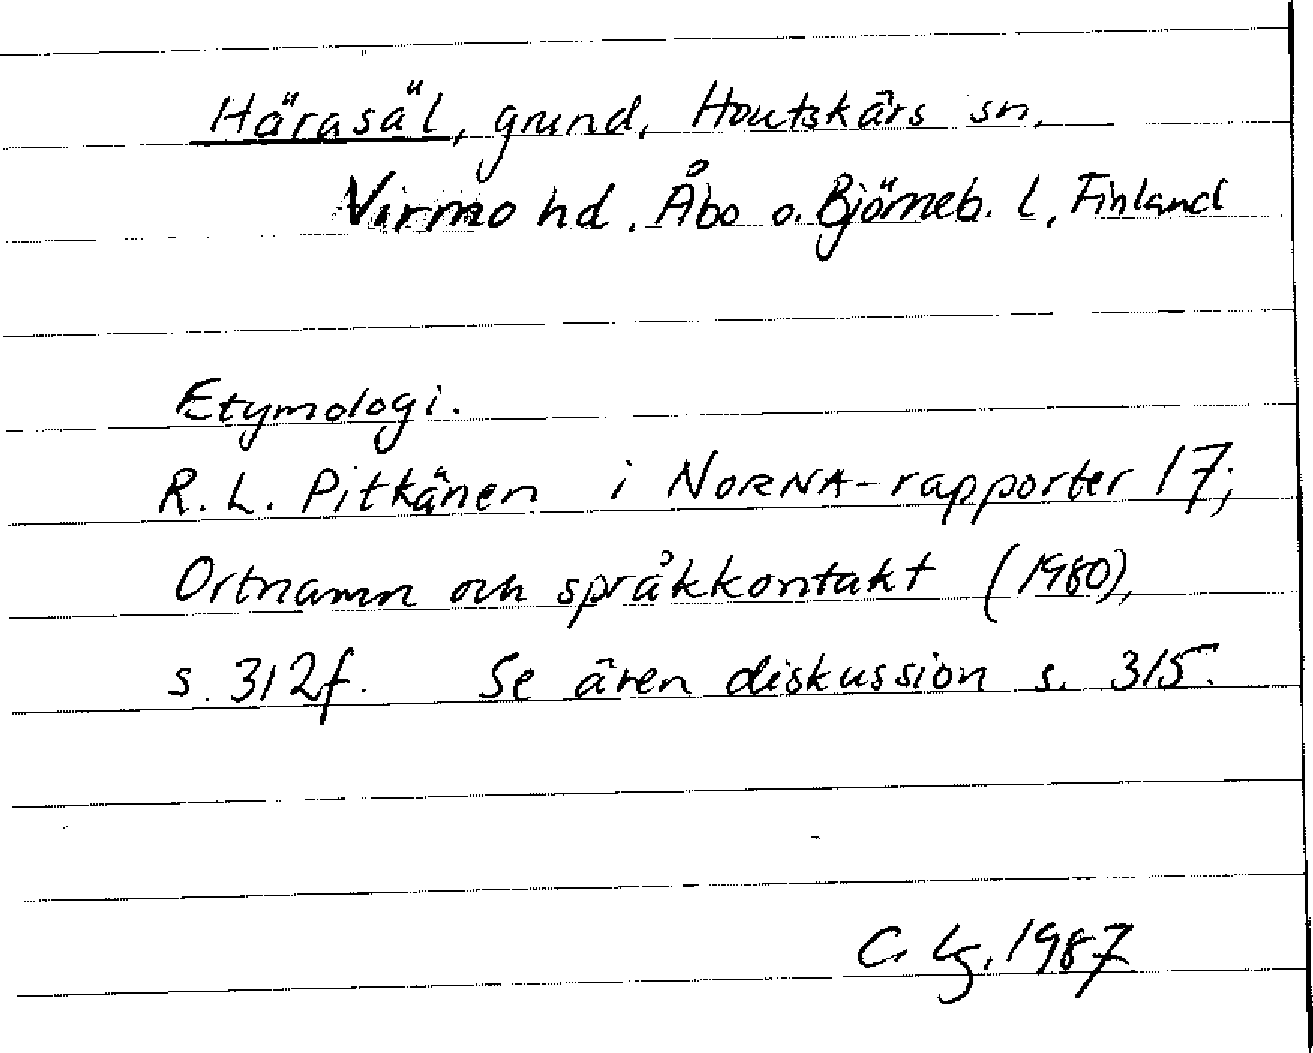 Häräsäl, grund, Houtskärs sn,
Virmo hd. Åbo o. Björneb. l, Finland
Etymologi.
R. L. Pitkänen i NORNA-rapporter 17;
Ortnamn och språkkontakt (1980),
s. 312f. Se även diskussion s. 315.
C. Lg. 1987